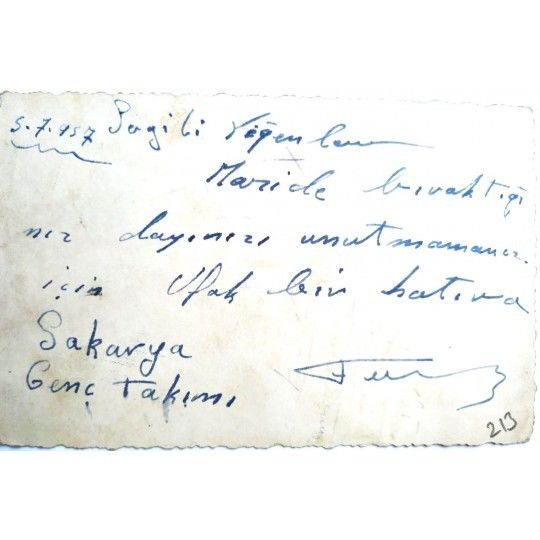 5.7.957 Sevgili Yeğenlerim
Mazide bıraktığı
nız dayınızı unutmamanız
için Ufak bir hatıra
Sakarya
Genç Takımı
213